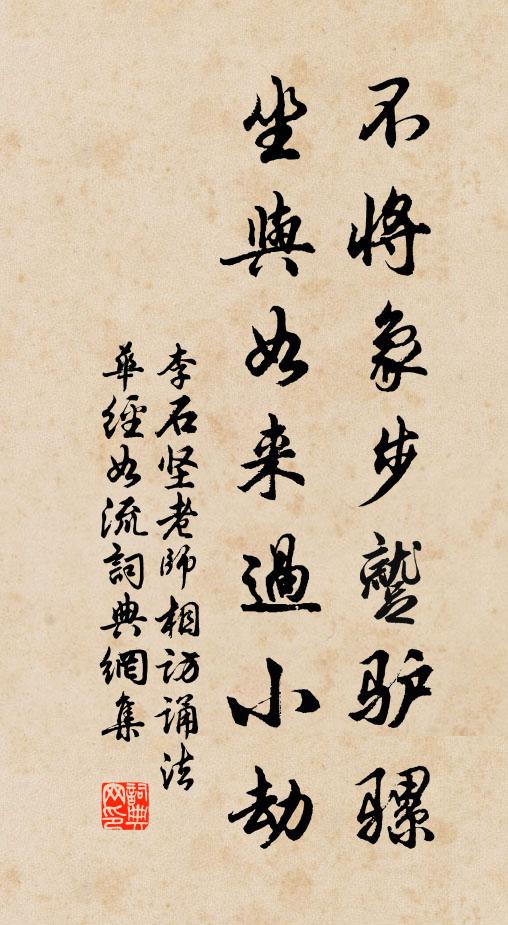 不将象步蹵驴骡
坐與如来過小劫
李石坚老師相訪誦法
華經如流詞典網集
詞典网印